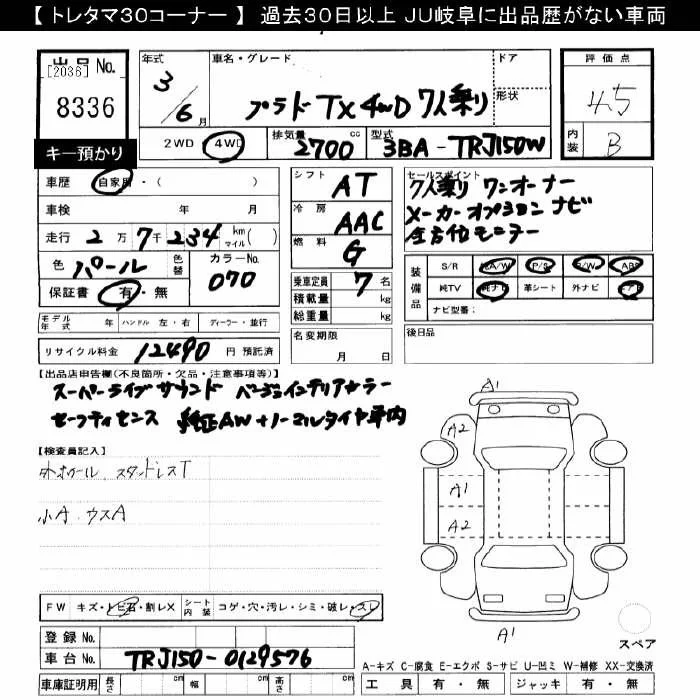 【 トレタマ30コーナー 】 過去30日以上 JU岐阜に出品歴がない車両
出品 No.
[2036]
8336
キー預かり
年式 3/6月
車名・グレード プラド TX 4WD 7人乗り
ドア
形状
評価点 4.5
内装 B
2WD 4WD
排気量 2700 cc
型式 3BA-TRJ150W
車歴 自家用・( )
車検 年 月
走行 2万7千234 km マイル( )
色 パール 色替 カラーNo. 070
保証書 有・無
シフト AT
冷房 AAC
燃料 G
乗車定員 7 名
積載量 kg
総重量 kg
セールスポイント
7人乗り ワンオーナー
メーカーオプション ナビ
全方位モニター
装備品
S/R A/W P/S P/W ABS
純TV 純ナビ 革シート 外ナビ エアB
ナビ型番:
モデル年式 年 ハンドル 左・右 ディーラー・並行
リサイクル料金 12490 円 預託済
名変期限 月 日
後日品
【出品店申告欄(不良箇所・欠品・注意事項等)】
スーパーライブサウンド ベージュインテリアカラー
セーフティセンス 純正AW+ノーマルタイヤ車内
【検査員記入】
外ホイール スタッドレスT
小A ウスA
A1
A2
A1
A2
A1
スペア
FW キズ・トビ石・割レX シート内装 コゲ・穴・汚レ・シミ・破レ・スレ
登録 No.
車台 No. TRJ150-0129576
A-キズ C-腐食 E-エクボ S-サビ U-凹ミ W-補修 XX-交換済
車庫証明用 長さ cm 幅 cm 高さ cm
工具 有・無 ジャッキ 有・無